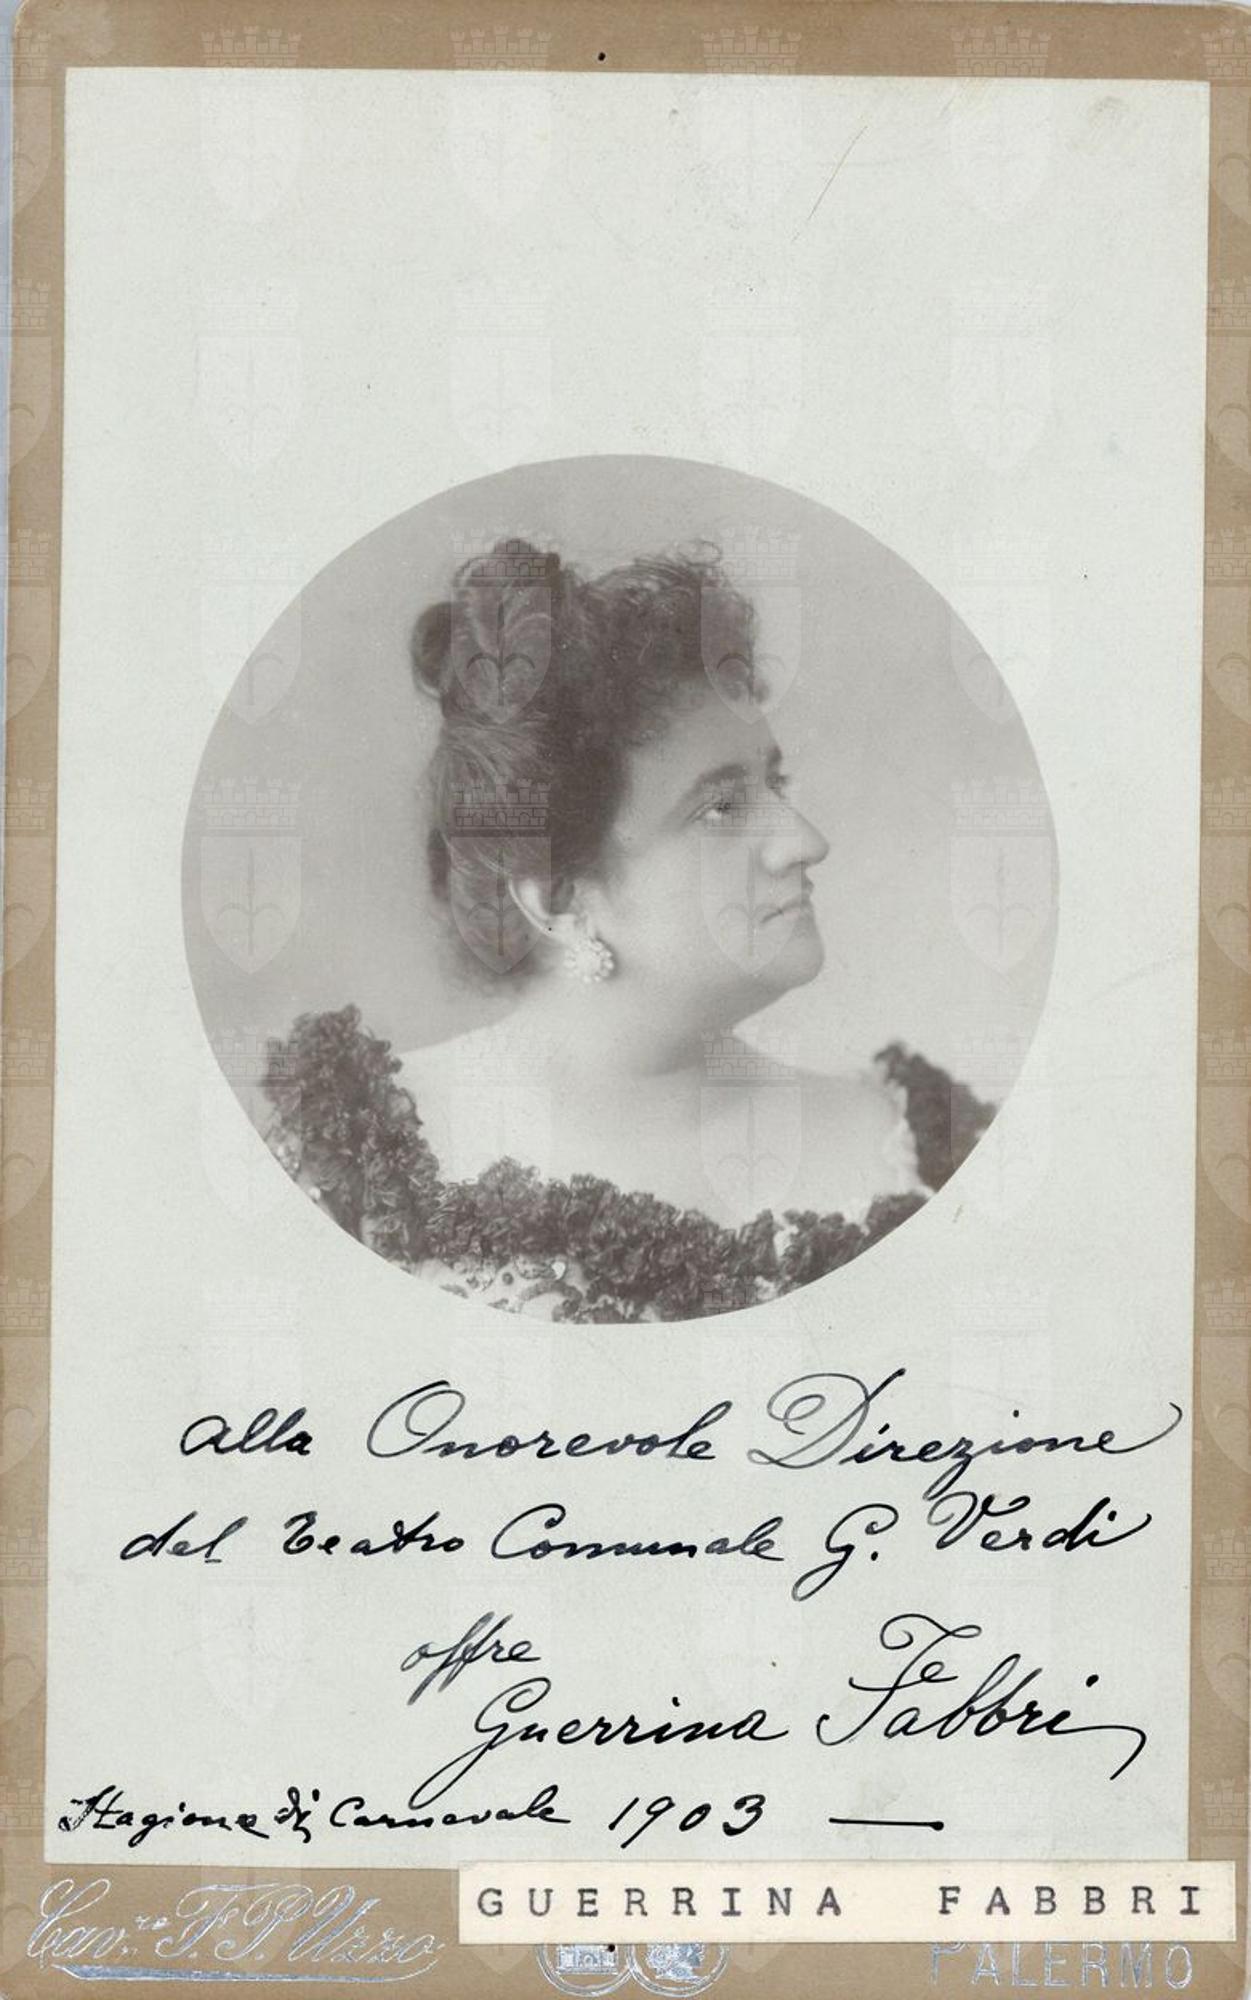 alla Onorevole Direzione
del Teatro Comunale G. Verdi
offre
Guerrina Fabbri
Stagione di Carnevale 1903 —
GUERRINA FABBRI
Cav.re F. P. Uzzo
PALERMO